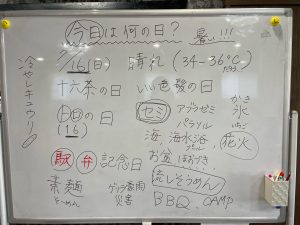 今日は何の日？
暑い!!!
冷やしキュウリ
16(日) 晴れ (34-36℃)
十六茶の日 いい色髪の日
の日
(16)
セミ アブラゼミ
パラソル
かき氷
海, 海水浴
花火
駅弁記念日
お盆
素麺
そーめん
災害
流しそうめん
BBQ, CAMP